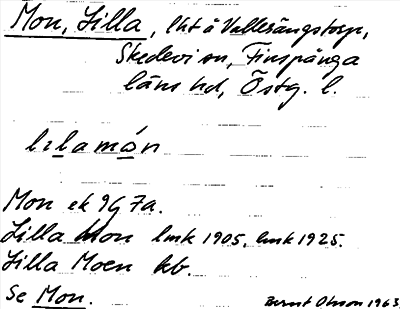 Mon, Lilla, lht å Vallesängstorp,
Skedevi sn, Finspånga
läns hd, Östg. l.
lɩlamón
Mon ek 9G 7a.
Lilla Mon lmk 1905, lmk 1925.
Lilla Moen kb.
Se Mon.
Bernt Olsson 1963